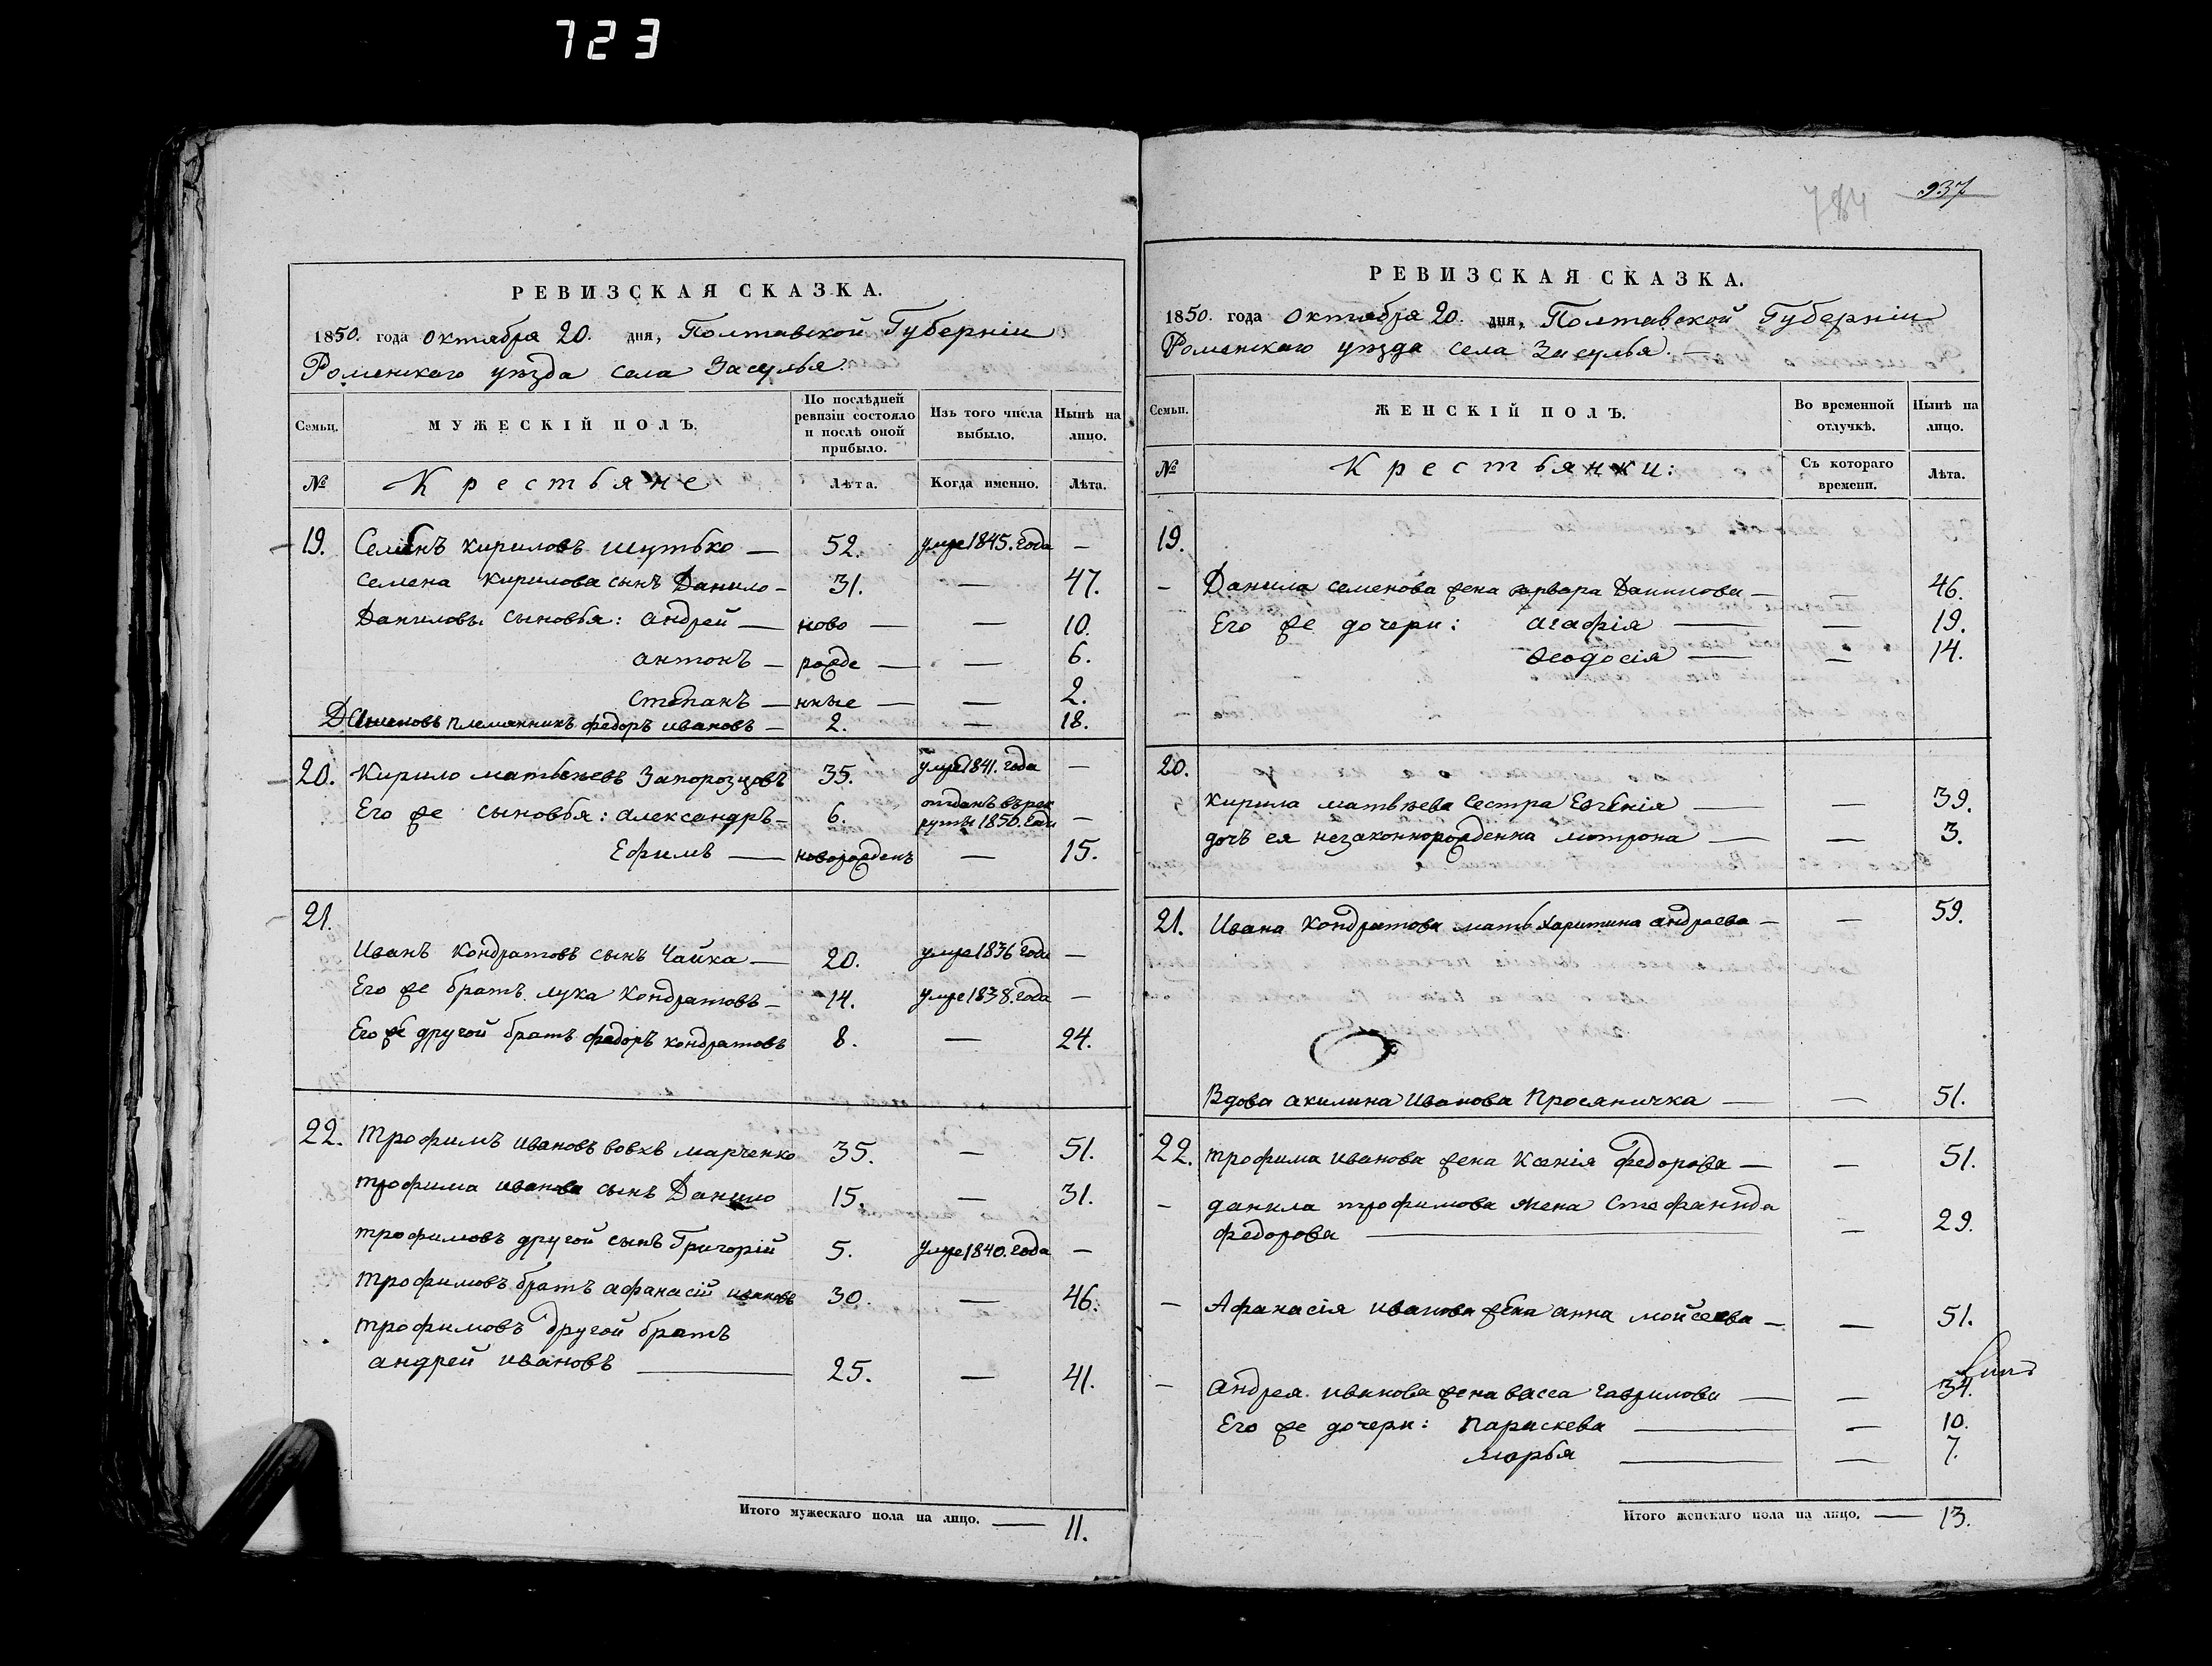 723
РЕВИЗСКАЯ СКАЗКА.
1850. года Октября 20. дня, Полтавской Губерніи
Роменскаго уѣзда села Засулья.
Семьи.
МУЖЕСКІЙ ПОЛЪ.
По послѣдней ревизіи состояло и послѣ оной прибыло.
Изъ того числа выбыло.
Нынѣ на лицо.
№
Крестьяне
Лѣта.
Когда именно.
Лѣта.
19. Семенъ Кириловъ Шутько — 52. умре 1845. года —
Семена Кирилова сынъ Данило — 31. — 47.
Даниловы сыновья: Андрей — ново — — 10.
Антонъ — рожде — — 6.
Степанъ — нные — — 2.
племянникъ Федоръ Ивановъ — 2. — 18.
20. Кирило Матвѣевъ Запорозцовъ 35. умре 1841. года —
Его же сыновья: Александръ — 6. отданъ въ рек
руты 1850. года —
Ефимъ — новорожденъ — 15.
21.
Иванъ Кондратовъ сынъ Чайка — 20. умре 1836 года —
Его же братъ Лука Кондратовъ — 14. умре 1838. года —
Его же другой братъ Федоръ Кондратовъ 8. — 24.
22. Трофимъ Ивановъ Вовкъ Марченко 35. — 51.
Трофима Иванова сынъ Данило 15. — 31.
Трофимовъ другой сынъ Григорій 5. умре 1840. года —
Трофимовъ братъ Афанасій Ивановъ 30. — 46.
Трофимовъ другой братъ
Андрей Ивановъ — 25. — 41.
Итого мужескаго пола на лицо. — 11.
784 937
РЕВИЗСКАЯ СКАЗКА.
1850. года Октября 20. дня, Полтавской Губерніи
Роменскаго уѣзда села Засулья. —
Семьи.
ЖЕНСКІЙ ПОЛЪ.
Во временной отлучкѣ.
Нынѣ на лицо.
№
Крестьянки:
Съ котораго времени.
Лѣта.
19.
— Данила Семенова жена Варвара Данилова — — 46.
Его же дочери: Агафія — — 19.
Ѳеодосія — — 14.
20.
Кирила Матвѣева сестра Евгенія — — 39.
дочъ ея незаконнорожденна Мотрона — — 3.
21. Ивана Кондратова мать Харитина Андреева — — 59.
Вдова Акилина Иванова Просяничка — — 51.
22. Трофима Иванова жена Ксенія Федорова — — 51.
— Данила Трофимова жена Стефанида
Федорова — — 29.
— Афанасія Иванова жена Анна Мойсеева — — 51.
— Андрея Иванова жена Васса Гаврилова — — 34.
Его же дочери: Параскева — — 10.
Марья — — 7.
Итого женскаго пола на лицо. — 13.